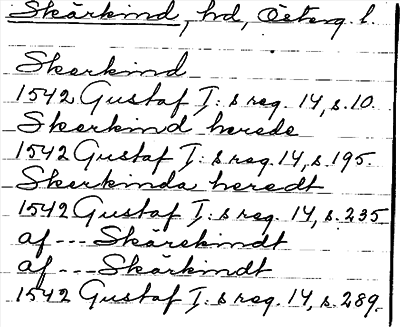 Skärkind, hd, Österg. l.
Skerkind
1542 Gustaf I: s reg. 14, s. 10.
Skerkind herede
1542 Gustaf I: s reg. 14, s. 195.
Skerkinda heredt
1542 Gustaf I: s reg. 14, s. 235
af --- Skärekindt
af --- Skärkindt
1542 Gustaf I: s reg. 14, s. 289.